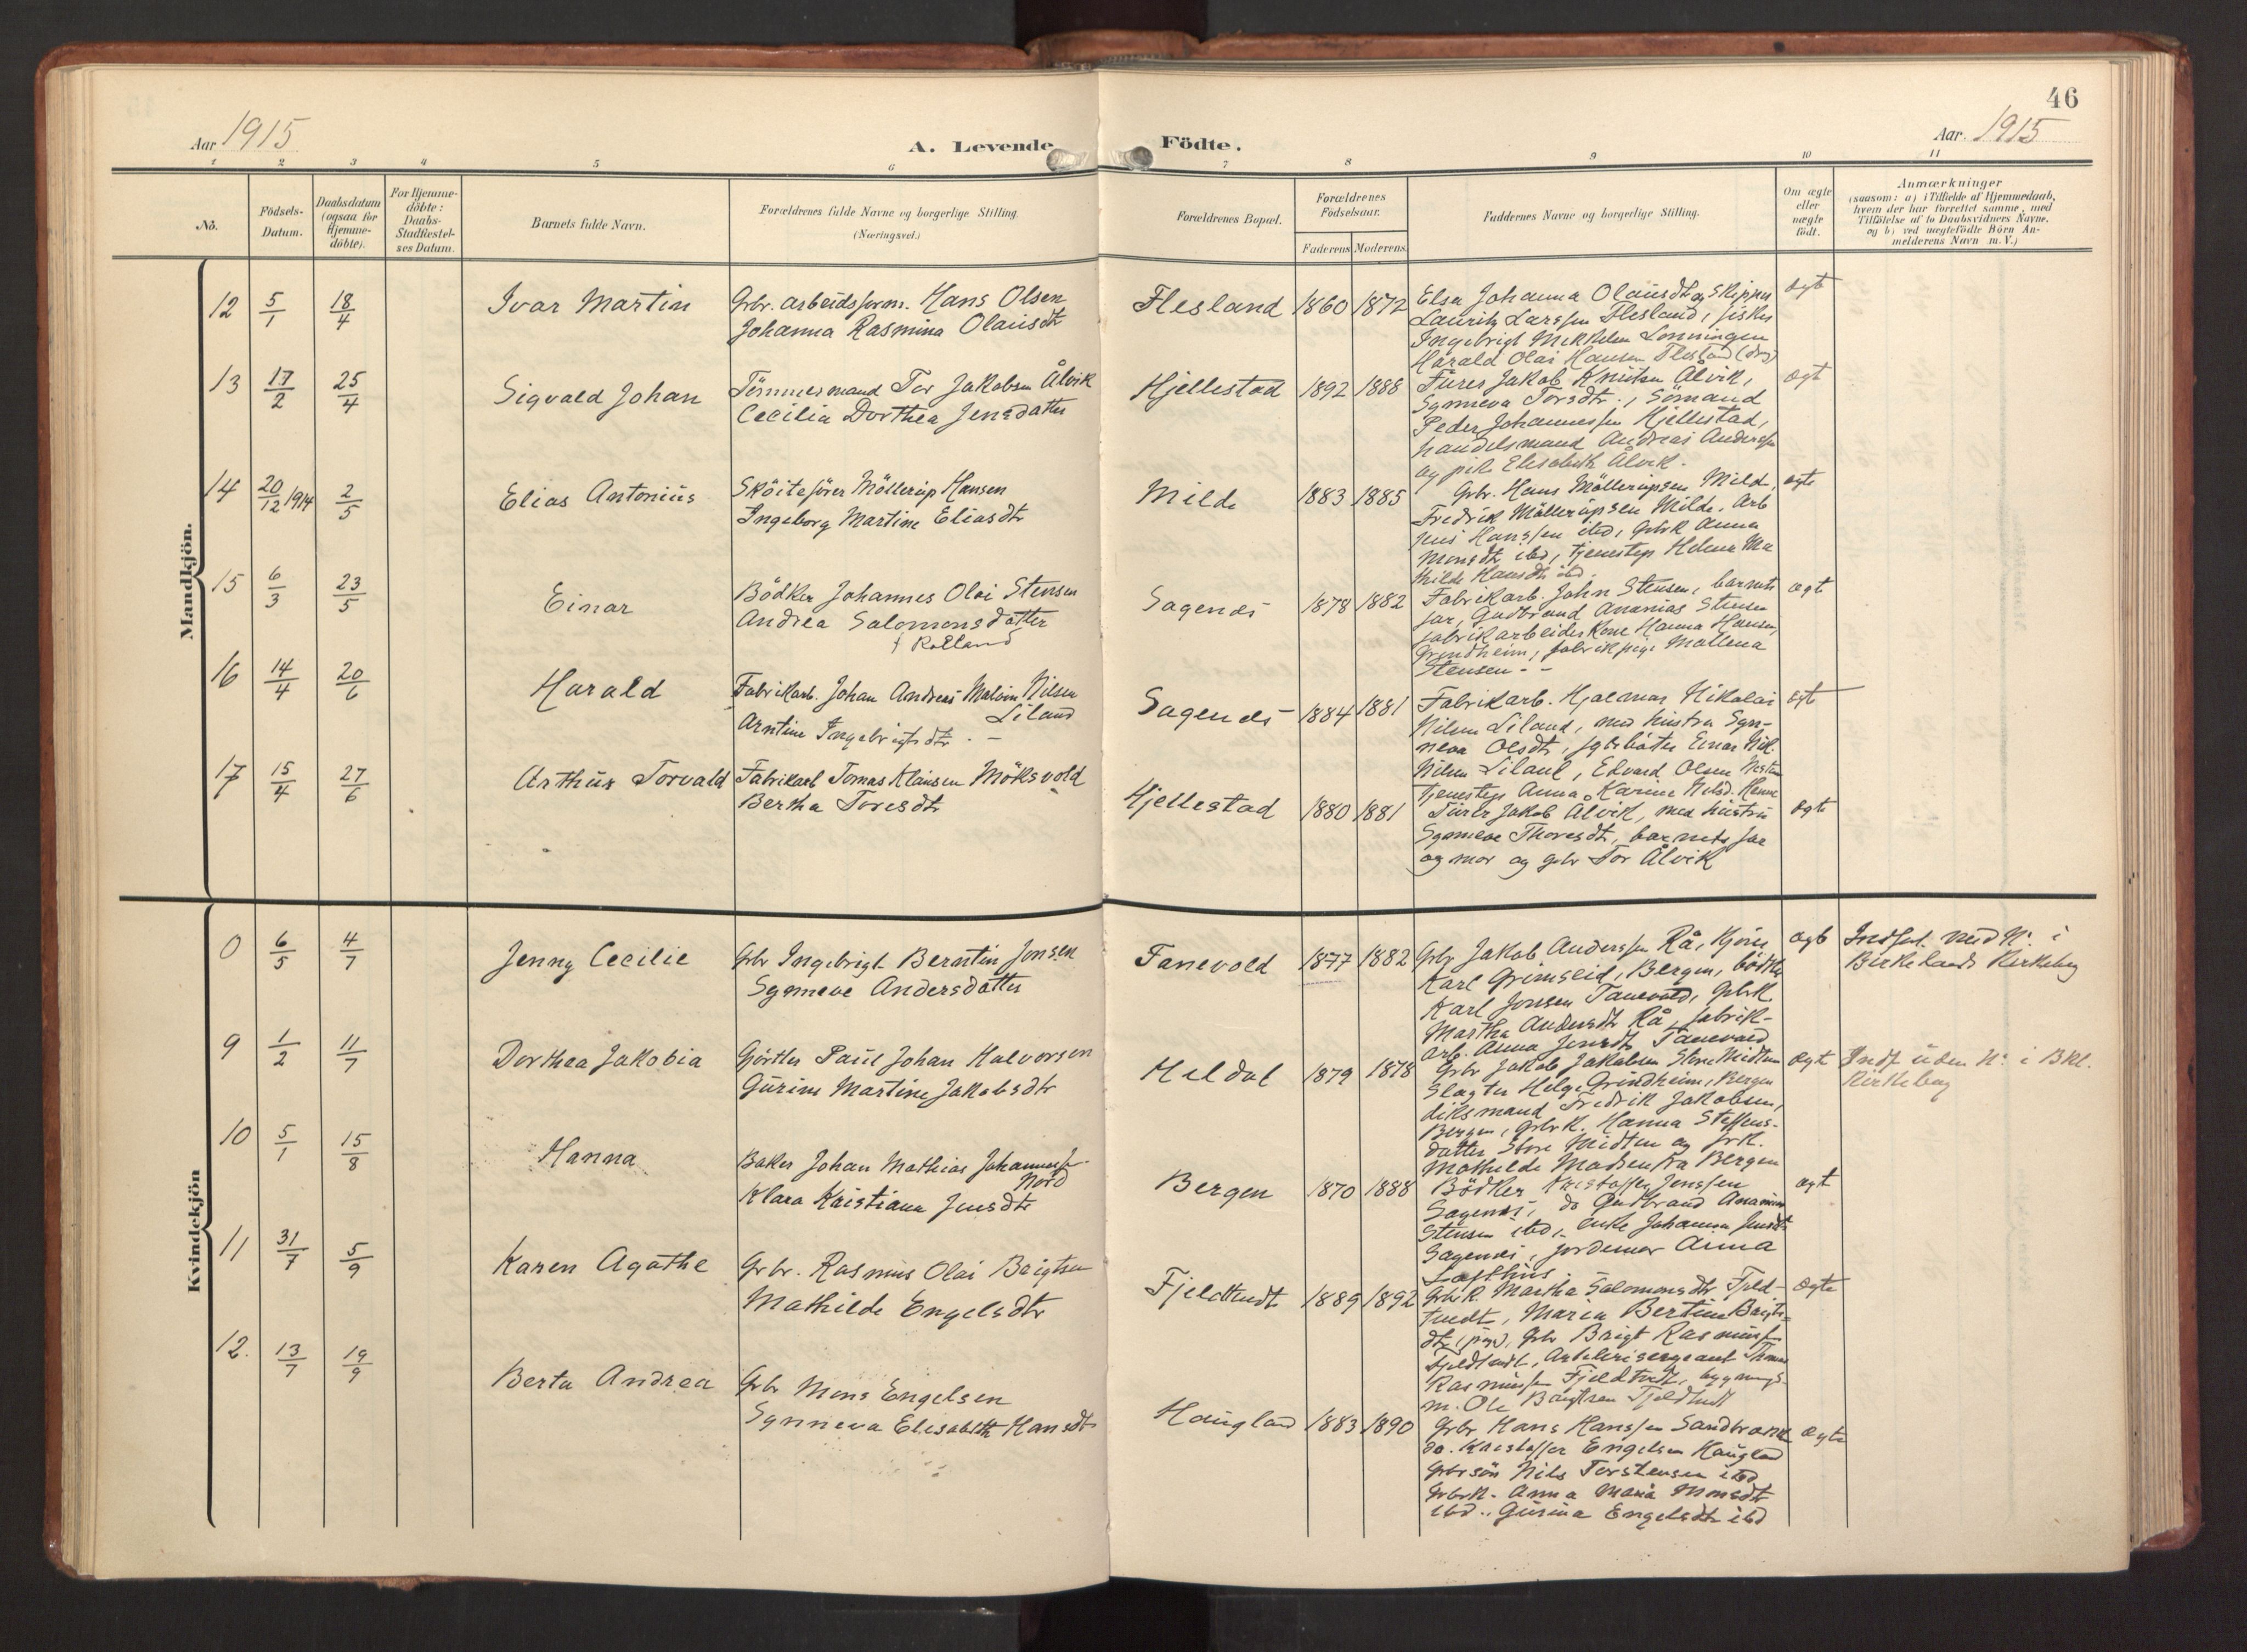 46
Aar 1915
A. Levende Födte.
Aar. 1915
1 2 3 4 5 6 7 8 9 10 11
No.
Födsels-
Datum.
Daabsdatum
(ogsaa for
Hjemme-
döbte).
For Hjemme-
döbte:
Daabs-
Stadfæstel-
ses Datum.
Barnets fulde Navn.
Forældrenes fulde Navne og borgerlige Stilling.
(Næringsvei.)
Forældrenes Bopæl.
Forældrenes
Födselsaar.
Faderens Moderens
Faddernes Navne og borgerlige Stilling.
Om ægte
eller
uægte
födt.
Anmærkninger
(saasom: a) i Tilfælde af Hjemmedaab,
hvem der har forrettet samme, med
Tilföielse af to Daabsvidners Navne.
og b) ved uægtefödte Börn An-
melderens Navn m. V.)
Mandkjön.
12 5/1 18/4 Ivar Martin Grbr. arbeidsform. Hans Olsen
Johanna Rasmina Olausdtr
Flesland 1860 1872 Elsa Johanna Olausdtr og Skipper
Lauritz Larssen Flesland, fisker
Ingebrigt Mikkelsen Lönningen
Harald Olai Hansen Flesland
ægt
13 17/2 25/4 Sigvald Johan Tömmermand Tor Jakobsen Ålvik
Cecilia Dorthea Jensdatter
Hjellestad 1892 1888 Fürer Jakob Knutsen Ålvik,
Synneva Torsdtr., Sömand
Peder Johannessen Hjellestad,
handelsmand Andreas Anderssen
og pike Elisabeth Ålvik.
ægt
14 20/12 1914 2/5 Elias Antonius Sköitefører Möllerup Hansen
Ingeborg Martine Eliasdtr
Milde 1883 1885 Grbr. Hans Möllerupsen Milde,
Fredrik Möllerupsen Milde, Arb
Jens Hanssen ibd, Grbrk Anna
Monsdtr ibd, tjenestep Helena Ma
thilde Hansdtr ibd.
ægte
15 6/3 23/5 Einar Bödker Johannes Olai Stensen
Andrea Salomonsdatter
f Rolland
Sagenes 1878 1882 Fabrikarb. John Stensen, barnets
far, Gudbrand Ananias Stensen
fabrikarbeiderkone Hanna Hansen
Grindheim, fabrikpige Mallena
Stensen - -
ægt
16 14/4 20/6 Harald Fabrikarb. Johan Andreas Malvin Nilsen
Liland
Arntine Ingebrigtsdtr. -
Sagenes 1884 1881 Fabrikarb. Hjalmar Nikolai
Nilsen Liland, med hustru Syn-
neva Olsdtr, fyrböter Einar Nik.
Nilsen Liland, Edvard Olsen
Tjenestep Anna Karine
ægt
17 15/4 27/6 Arthur Torvald Fabrikarb Tomas Klausen Möksvold
Bertha Toresdtr
Hjellestad 1880 1881 Fürer Jakob Alvik, med hustru
Synneve Thoresdtr, barnets far
og mor og grbr Tor Ålvik
ægte
Kvindekjön
0 6/5 4/7 Jenny Cecilie Grbr Ingebrigt Berntin Jonsen
Synneve Andersdatter
Fanevold 1877 1882 Grbr Jakob Anderssen Rå,
Karl Grimseid, Bergen, bödker
Karl Jonsen Fanevold, Grbrk
Martha Andersdtr Rå, fabrik-
arb. Anna Jonsdtr Fanevold
ægt Indfört med No. i
Birkelands Kirkebog
9 1/2 11/7 Dorthea Jakobia Gjörtler Paul Johan Halvorsen
Gurine Martine Jakobsdtr
Meldal 1879 1878 Grbr Jakob Jakobsen Store Midtun
Slagter Helge Grindheim, Bergen
diksmand Fredrik Jakobsen,
Bergen, Grbrk. Hanna Steffens-
datter Store Midtun og frk.
Mathilde Madsen fra Bergen
ægt Indf uden No. i Bkl.
Kirkebog
10 5/1 15/8 Hanna Baker Johan Mathias Johannessen
Nord
Klara Kristiana Jensdtr
Bergen 1870 1888 Bödker Kristoffer Jenssen
Sagenes, do Gudbrand Ananias
Stensen ibd, enke Johanna Jensdtr
Sagenes, jordemor Anna
Lofthus.
ægt
11 31/7 5/9 Karen Agathe Grbr. Rasmus Olai Brigtsen
Mathilde Engelsdtr
Fjeldtvedt 1889 1892 GrbrK. Martha Salomonsdtr Fjeld-
tvedt, Maria Bertine Brigts-
dtr (pige), Grbr Brigt Rasmussen
Fjeldtvedt, Artilerisergeant Thomas
Rasmussen Fjeldtvedt, bygnings-
m. Ole Brigtsen Fjeldtvedt
ægte
12. 13/7 19/9 Berta Andrea Grbr Mons Engelsen
Synneva Elisabeth Hansdtr
Haugland 1883 1890 Grbr Hans Hanssen Sandbrække
do. Kristoffer Engelsen Haugland
Grbrsön Nils Torstensen ibd
Grbrk. Anna Maria Monsdtr
ibd., Gurina Engelsdtr ibd
ægte